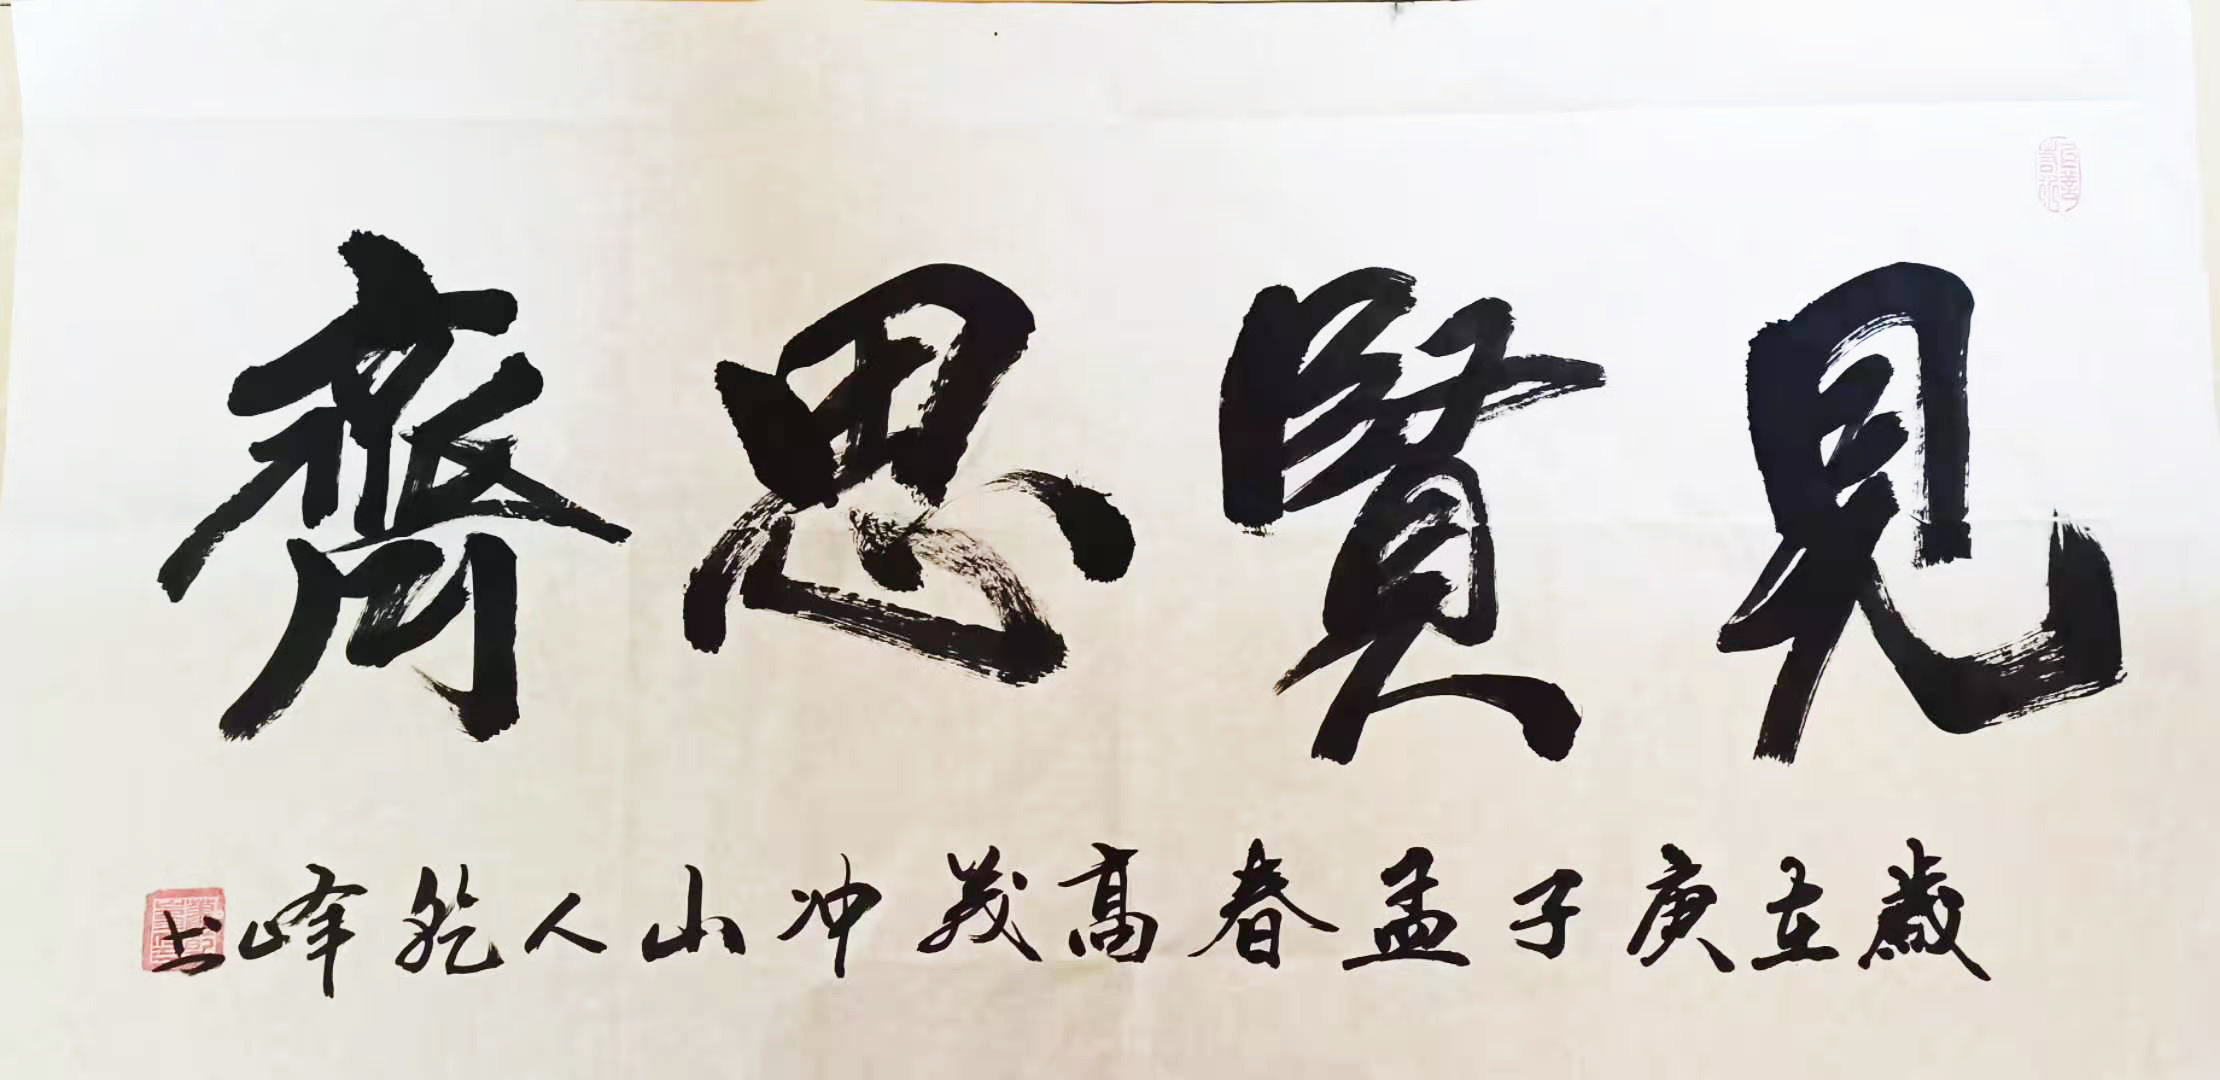 見賢思齊
歲在庚子孟春高義冲山人乾峰上